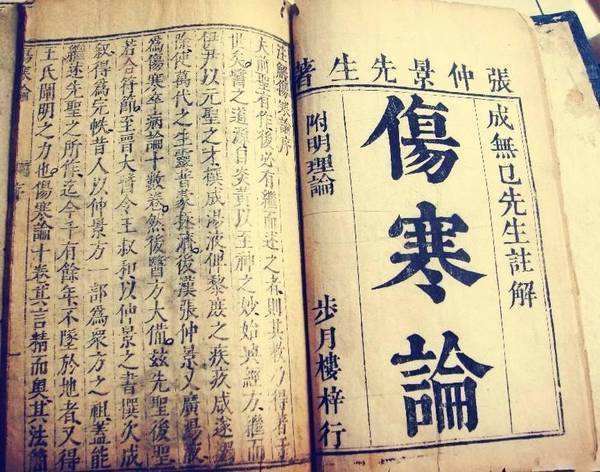 張仲景先生著
成無已先生註解
傷寒論
附明理論
步月樓梓行
注解傷寒論序
夫前聖有作後必有繼而述之者則其教乃得著于
世矣醫之道源自炎黃以至神之妙始興經方繼而
伊尹以元聖之才撰成湯液俾黎庶之疾疚咸遂蠲
除使萬代之生靈普蒙拯濟後漢張仲景又廣湯液
為傷寒卒病論十數卷然後醫方大備茲先聖後聖
若合符節至晉太醫令王叔和以仲景之書撰次成
叙得為完帙昔人以仲景方一部為眾方之祖蓋能
繼述先聖之所作迄今千有餘年不墜於地者又得
王氏闡明之力也傷寒論十卷其言精而奧其法簡
傷寒論
序